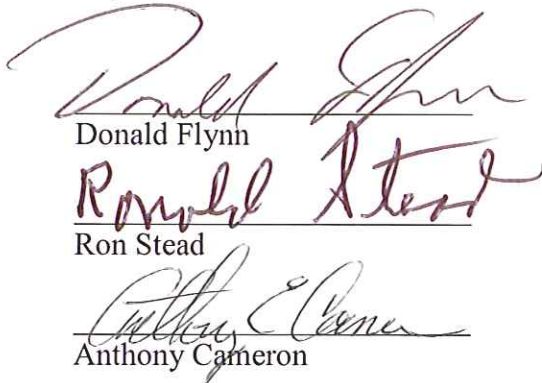 Donald Flynn
Donald Flynn
Ronald Stead
Ron Stead
Anthony E Cameron
Anthony Cameron